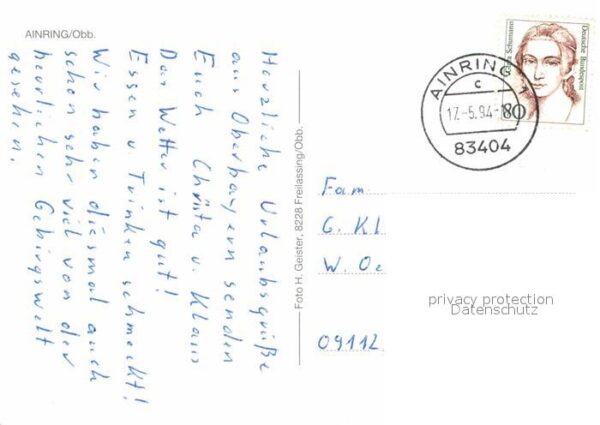 AINRING/Obb.
Herzliche Urlaubsgrüße
aus Oberbayern senden
Euch Christa u. Klaus
Das Wetter ist gut!
Essen u. Trinken schmeckt!
Wir haben diesmal auch
schon sehr viel von der
herrlichen Gebirgswelt
gesehen.
Foto H. Geister, 8228 Freilassing/Obb.
Clara Schumann
Deutsche Bundespost
80
AINRING 1
c
17.-5.94-
83404
Fam.
G. Kl
W. Oe
09112
privacy protection
Datenschutz